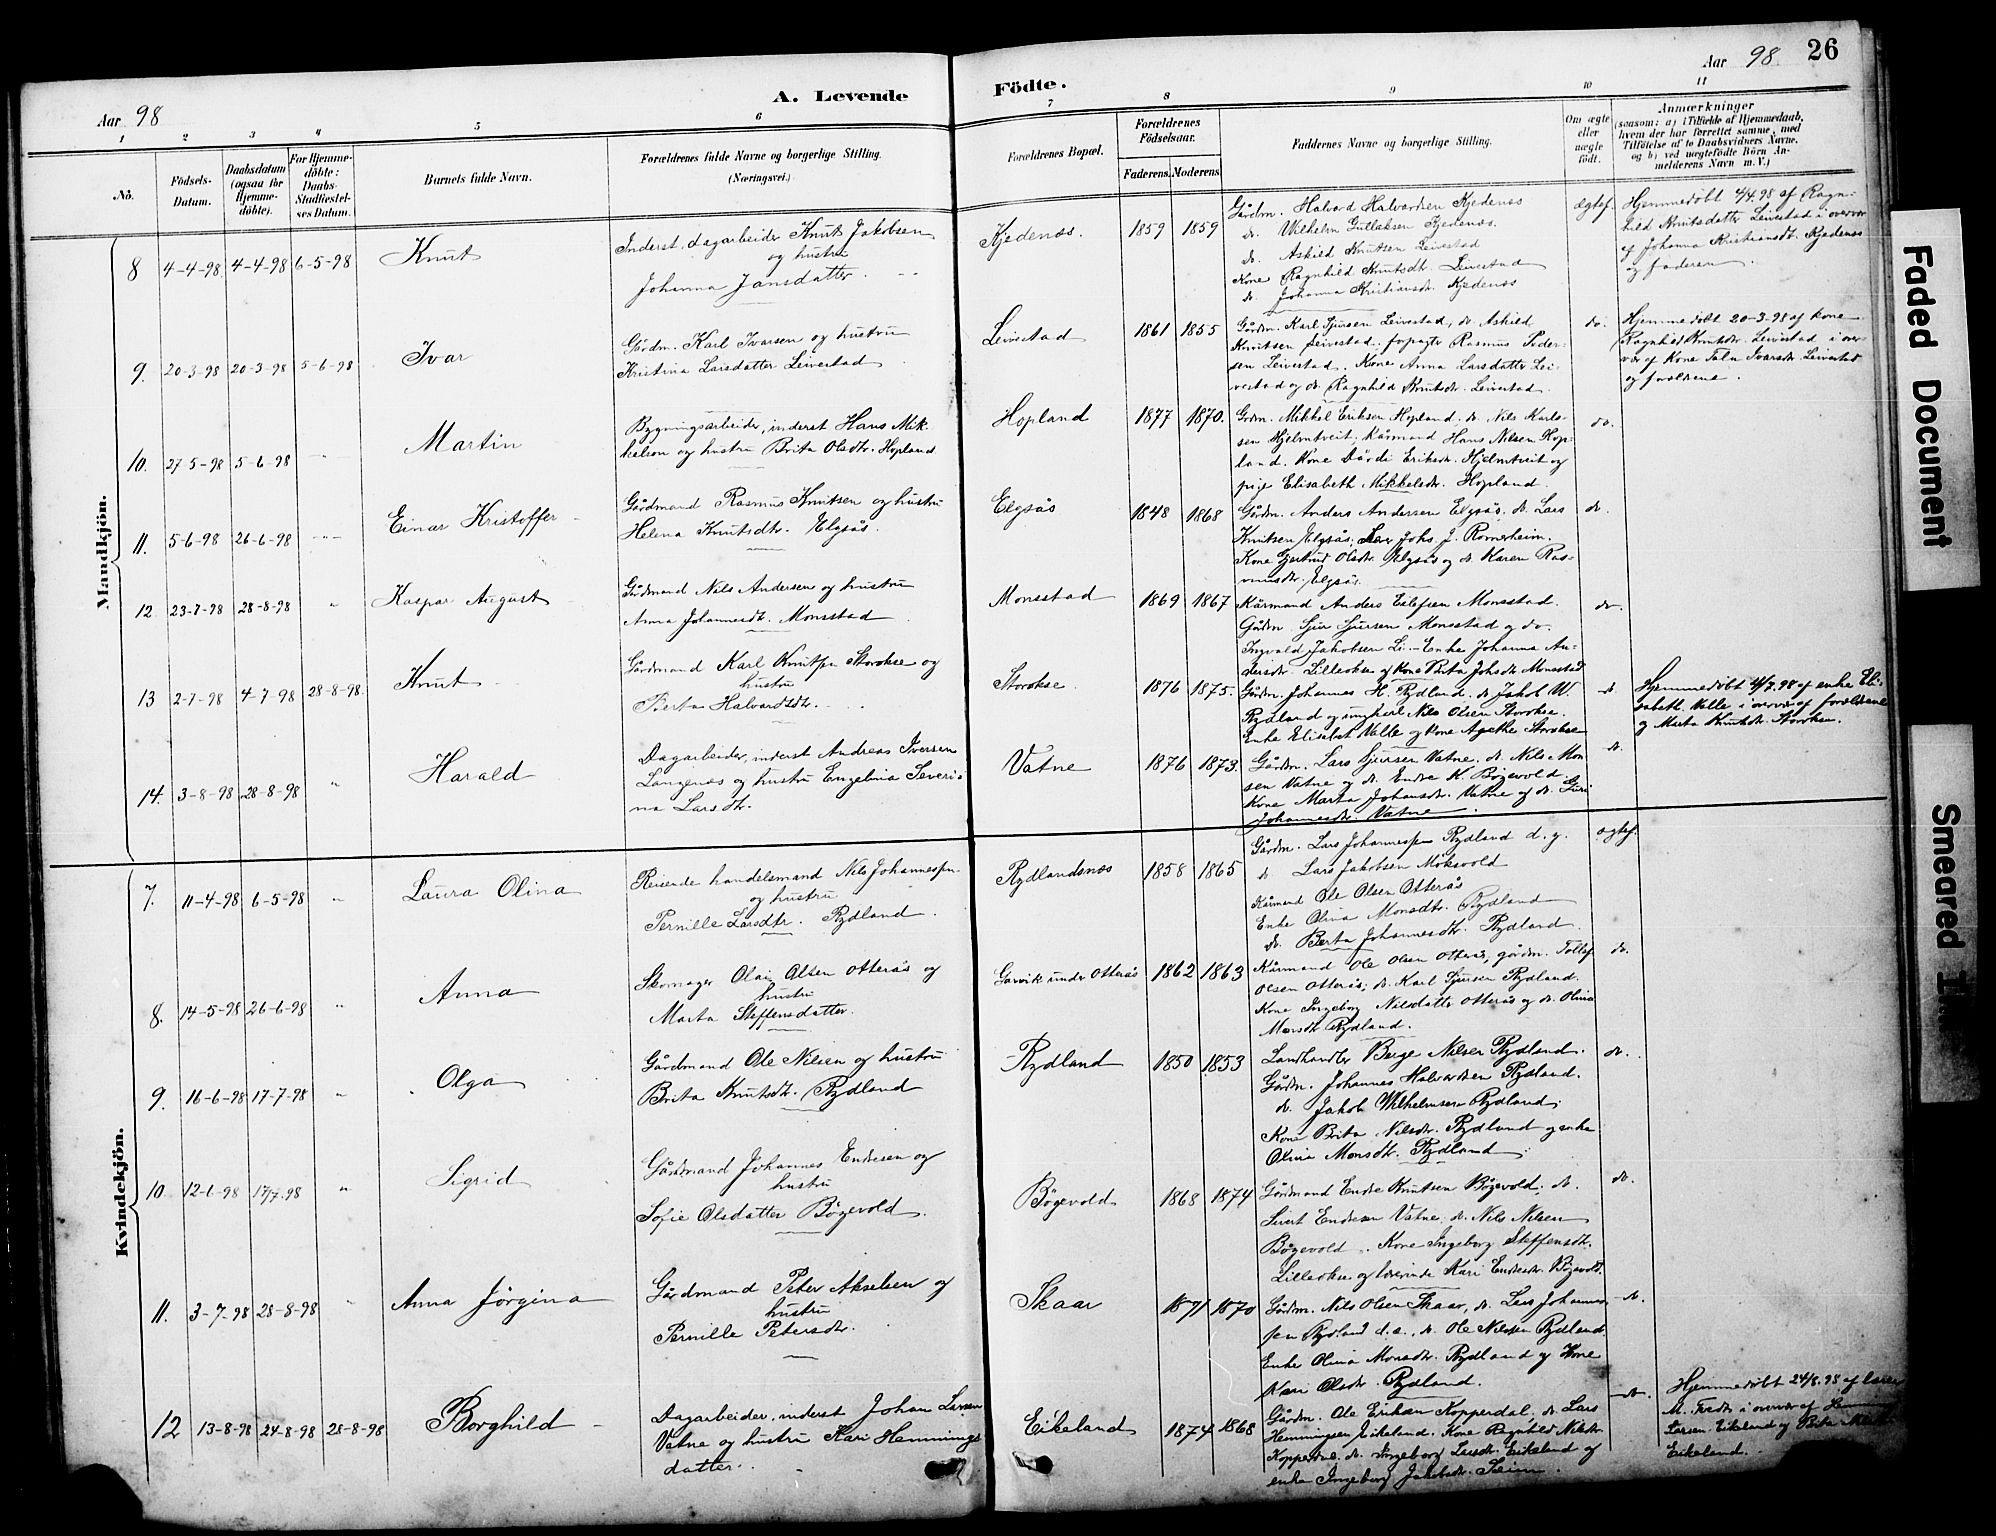 Aar 98
A. Levende
Födte.
Aar 98
26
1 2 3 4 5 6 7 8 9 10 11
No.
Födsels-Datum.
Daabsdatum (ogsaa för Hjemmedöbte).
For Hjemmedöbte: Daabs-Stadfæstelses Datum.
Barnets fulde Navn.
Forældrenes fulde Navne og borgerlige Stilling.
(Næringsvei.)
Forældrenes Bopæl.
Forældrenes Födselsaar.
Faderens. Moderens
Faddernes Navne og borgerlige Stilling.
Om ægte eller uægte født.
Anmærkninger
(saasom: a) i Tilfælde af Hjemmedaab, hvem der har forrettet samme, med Tilföielse af to Daabsvidners Navne, og b) ved uægtefödte Börn Anmelderens Navn m. V.)
Mandkjön.
8 4-4-98 4-4-98 6-5-98 Knut
Inderst, dagarbeider Knut Jakobsen
og hustru
Johanna Jansdatter
Kjedenæs. 1859 1859
Gårdm. Halvard Halvardsen Kjedenæs
do. Wilhelm Gullaksen Kjedenæs.
do. Askild Knutsen Leivestad
Kone Ragnhild Knutsdtr. Leivestad
do. Johanna Kristiansdtr. Kjedenæs
Ægtef.
Hjemmedøbt 4/4.98 af Ragn-
hild Knutsdatter Leivestad i overvær
af Johanna Kristiansdt. Kjedenæs
og faderen.
9. 20-3-98 20-3-98 5-6-98 Ivar
Gårdm. Karl Ivarsen og hustru
Kristina Larsdatter Leivestad
Leivestad 1861 1855
Gårdm. Karl Sjursen Leivestad, do. Askild
Knutsen Leivestad. forpagter Rasmus Peder-
sen Leivestad. Kone Anna Larsdatter Lei-
vestad og do. Ragnhild Knutsdtr. Leivestad
do.
Hjemmedøbt 20-3-98 af kone
Ragnhild Knutsdtr. Leivestad i over
vær af Kone Ivarsdtr. Leivestad
og forældrene.
10. 27-5-98 5-6-98 Martin
Bygningsarbeider, inderst Hans Mik-
kelsen og hustru Brita Olsdtr. Hopland
Hopland 1877 1870.
Grdm. Mikkel Eriksen Hopland. do. Nils Karls-
sen Hjelmtveit. Kårmand Hans Nilsen Hop-
land. Kone Dårdi Eriksdtr. Hjelmtveit og
pige Elisabeth Mikkelsdtr. Hopland.
do.
11. 5-6-98 26-6-98 Einar Kristoffer
Gårdmand Rasmus Knutsen og hustru
Helena Knutsdtr. Elgsås.
Elgsås 1848 1868
Gårdm. Anders Andersen Elgsås, do. Lars
Knutsen Elgsås. Lærer Johs J. Romerheim.
Kone Gjertrud Olsdtr. Elgsås og do. Karen Ras-
musdtr. Elgsås.
do.
12. 23-7-98 28-8-98 " Kaspar August
Gårdmand Nils Andersen og hustru
Anna Johannesdtr. Monsstad
Monsstad 1869 1867
Kårmand Anders Eilefsen Monsstad.
Gårdm. Sjur Sjursen Monsstad og do.
Ingvald Jakobsen Li - Enke Johanna An-
dersdtr. Lilleokse og Kone Brita Johsdtr Monsstad
do.
13 2-7-98 4-7-98 28-8-98. Knut
Gårdmand Karl Knutsen Storokse og
hustru
Berta Halvardsdtr.
Storokse. 1876 1875.
Gårdm. Johannes H. Rydland. do Jakob W.
Rydland og ungkarl Nils Olsen Storokse.
Enke Elisabet Valle og Kone Agathe Storokse
do
Hjemmedøbt 4/7.98 af enke Eli-
sabeth Valle i overvær af forældrene
og Marta Knutsdtr. Storoksen.
14. 3-8-98 28-8-98 " Harald
Dagarbeider, inderst Andreas Iversen
Langenæs og hustru Engelina Severi-
na Larsdtr.
Vatne 1876 1873.
Gårdm. Lars Sjursen Vatne. do. Nils Mon
sen Vatne og do. Endre K. Bögevold
Kone Marta Johansdtr. Vatne og do. Guri
Johannesdtr. Vatne.
do.
Kvindekjön.
7. 11-4-98 6-5-98 " Laura Olina
Reisende handelsmand Nils Johannessen
og hustru
Pernille Larsdtr. Rydland.
Rydlandsnæs 1858 1865
Gårdm. Lars Johannessen Rydland d.y.
do. Lars Jakobsen Möksvold
Kårmand Ole Olsen Otterås
Enke Olina Monsdtr. Rydland
do. Berta Johannesdtr. Rydland.
ægtef.
8. 14-5-98 26-6-98 " Anna
Skomager Olai Olsen Otterås og
hustru
Marta Steffensdatter.
Garvik under Otterås 1862 1863
Kårmand Ole Olsen Otterås, gårdm. Tollef
Olsen Otterås, do. Karl Sjursen Rydland.
Kone Ingeborg Nilsdatter Otterås og do. Olina
Monsdtr. Rydland.
do.
9. 16-6-98 17-7-98 " Olga
Gårdmand Ole Nilsen og hustru
Brita Knutsdtr. Rydland
Rydland 1850 1853
Landhandler Berge Nilsen Rydland.
Gårdm. Johannes Halvardsen Rydland.
do. Jakob Wilhelmsen Rydland.
Kone Brita Nilsdtr. Rydland og enke
Olina Monsdtr. Rydland.
do.
10. 12-6-98 17/7.98 " Sigrid
Gårdmand Johannes Endresen og
hustru
Sofie Olsdatter Bögevold.
Bögevold 1868 1874
Gårdmand Endre Knutsen Bögevold. do.
Sivert Endresen Vatne. do. Nils Nilsen
Bögevold. Kone Ingeborg Steffensdtr.
Lilleokse og lærerinde Kari Endresdtr. Bögevold.
do.
11. 3-7-98 28-8-98 " Anna Jörgina
Gårdmand Peter Akselsen og
hustru
Pernille Petersdtr.
Skaar 1871 1870
Gårdm. Nils Olsen Skaar, do. Lars Johannes-
sen Rydland d.e., do. Ole Nilssen Rydland.
Enke Olina Monsdtr. Rydland og Kone
Kari Olsdtr. Rydland.
do.
12 13-8-98 24-8-98 28-8-98 Borghild
Dagarbeider, inderst Johan Larsen
Vatne og hustru Kari Hemmings-
datter.
Eikeland 1874 1868
Gårdm. Ole Eriksen Kopperdal, do. Lars
Hemmingsen Eikeland. Kone Ragnhild Nilsdtr.
Kopperdal. do. Ingeborg Larsdtr. Eikeland og
enke Ingeborg Jakobsdtr. Seim.
do.
Hjemmedøbt 24/8.98 af lærer
i overvær af Hemming
Larsen Eikeland og Brita
Eikeland.
Faded Document
Smeared